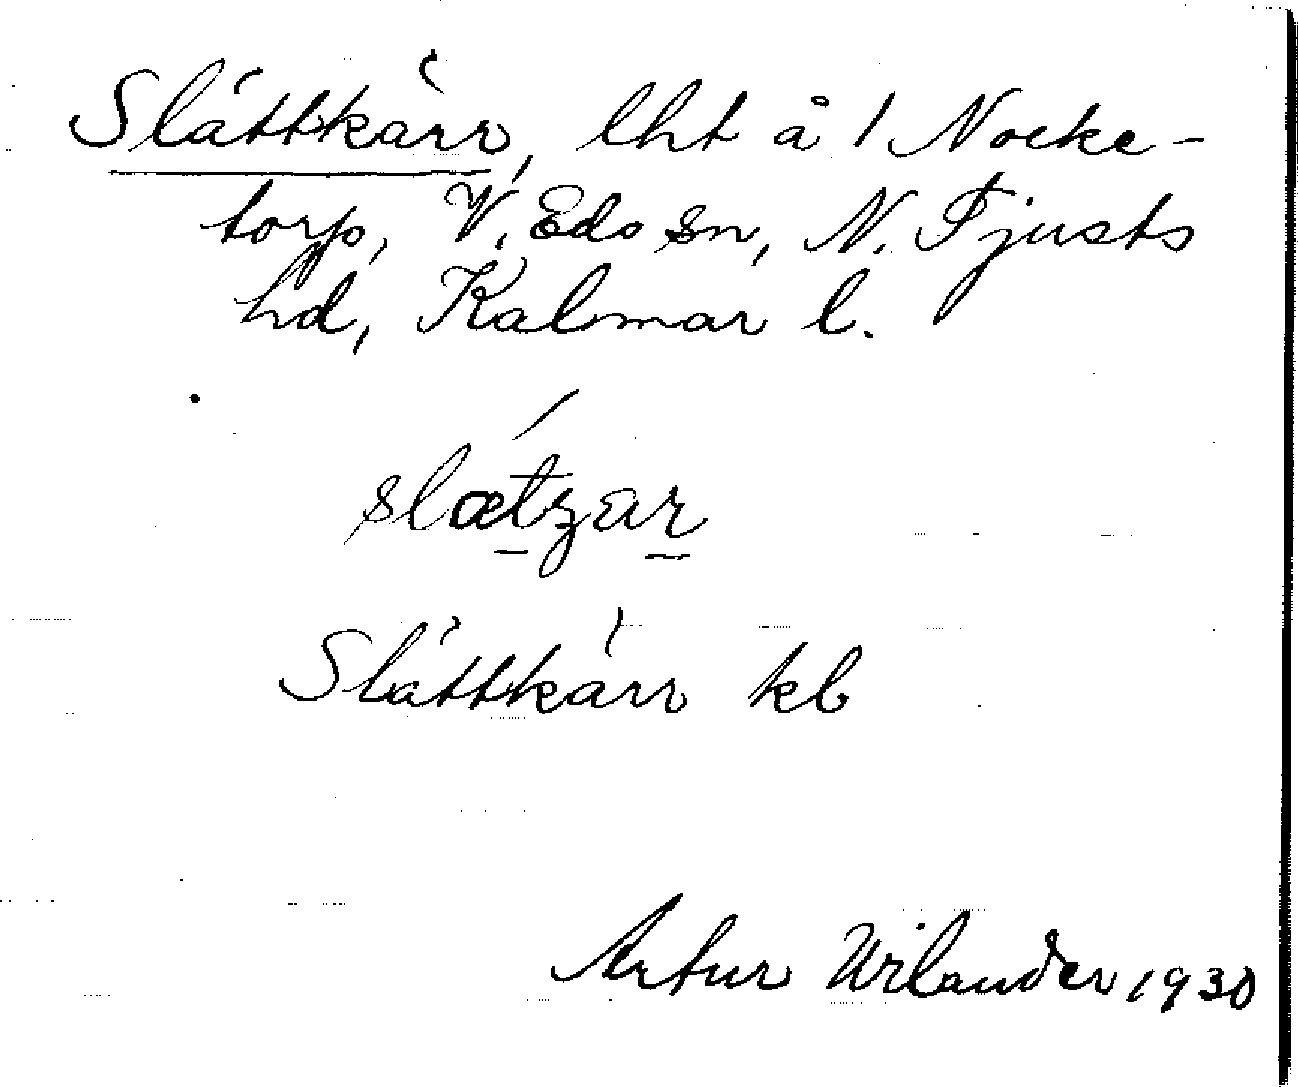 Slättkärr, lht å 1 Nocke-
torp, V. Eds sn, N. Tjusts
hd, Kalmar l.
Slättkärr kb
Artur Wilander 1930